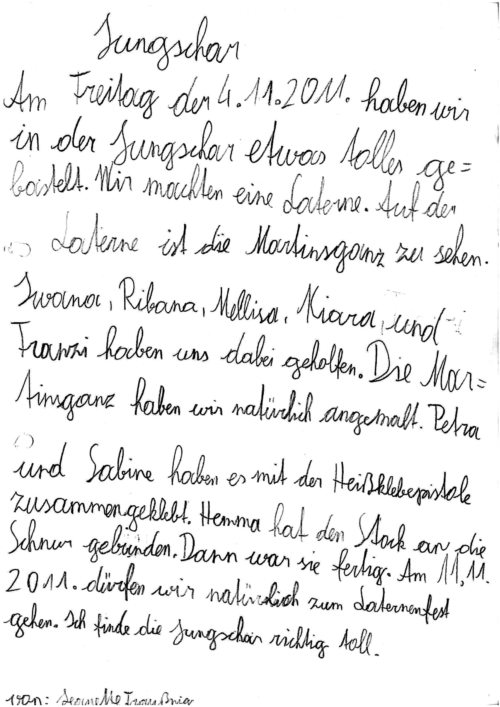 Jungschar
Am Freitag der 4.11.2011. haben wir
in der Jungschar etwas tolles ge=
bastelt. Wir machten eine Laterne. Auf der
Laterne ist die Martinsganz zu sehen.
Iwana, Ribana, Mellisa, Kiara, und
Franzi haben uns dabei geholfen. Die Mar=
tinsganz haben wir natürlich angemalt. Petra
und Sabine haben es mit der Heißklebepistole
zusammengeklebt. Hemma hat den Stock an die
Schnur gebunden. Dann war sie fertig. Am 11,11.
2011. dürfen wir natürlich zum Laternenfest
gehen. Ich finde die Jungschar richtig toll.
von: